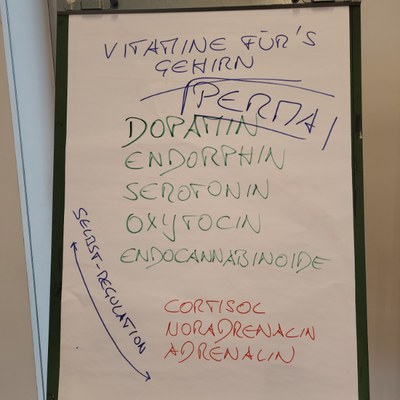 VITAMINE FÜR'S
GEHIRN
PERMA
DOPAMIN
ENDORPHIN
SEROTONIN
OXYTOCIN
ENDOCANNABINOIDE
SELBST-REGULATION
CORTISOL
NORADRENALIN
ADRENALIN